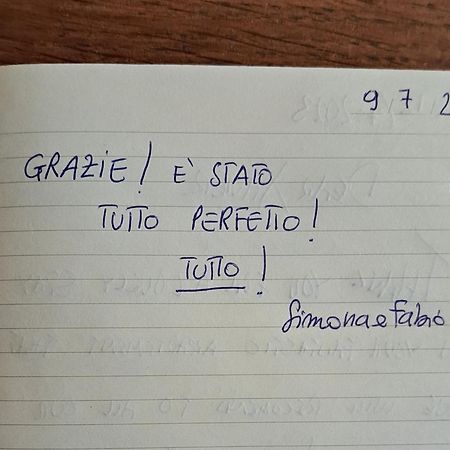 9 7 2
GRAZIE! E' STATO
TUTTO PERFETTO!
TUTTO!
Simona e Fabio